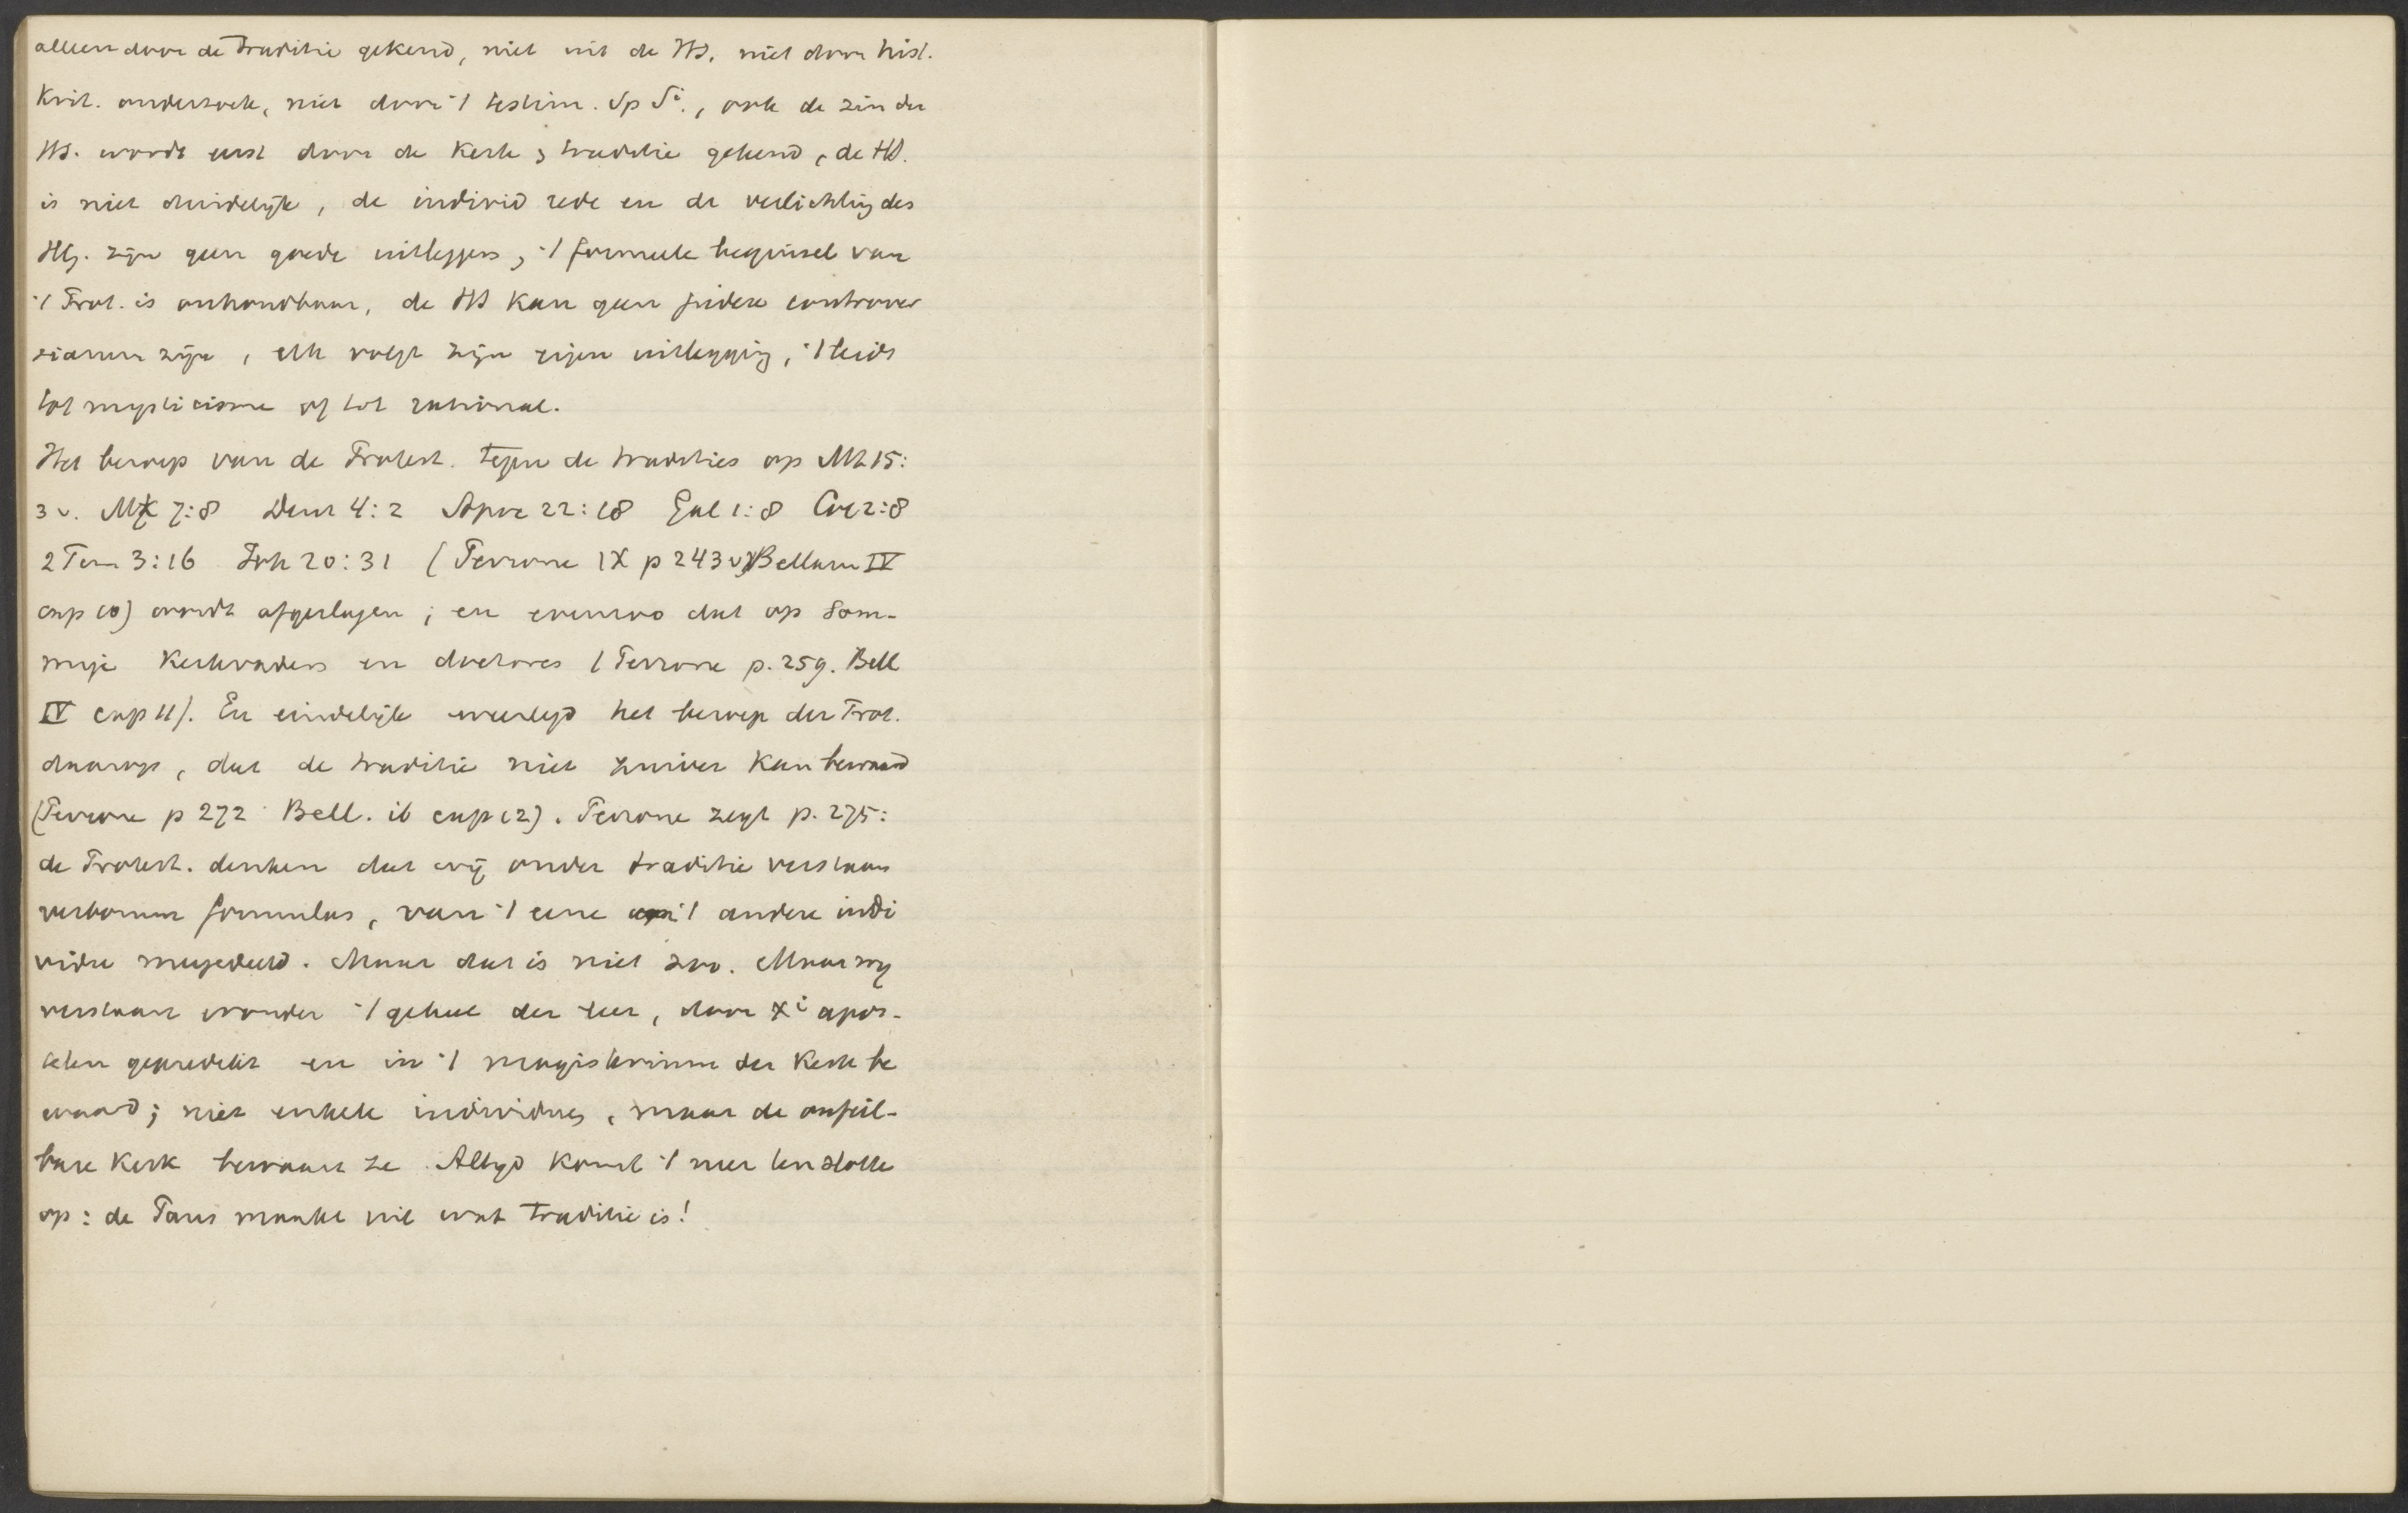 alleen door de Traditie gekend, niet uit de HS, niet door hist.
Krit. onderzoek, niet door 't testim. Sp Si., ook de zin der
HS. wordt eerst door de Kerk & traditie gekend, de HS.
is niet duidelijk, de individ rede en de verlichting des
HG. zijn geen goede uitleggers, 't formeele beginsel van
't Prot. is onhoudbaar, de HS kan geen judex controver
siarum zijn, elk volgt zijn eigen uitlegging, 't leidt
tot mysticisme of tot rational.
Het beroep van de Protest. tegen de tradities op Mt 15:
3 v. Mk 7:8 Deut 4:2 Apoc 22:18 Gal 1:8 Col 2:8
2 Tim 3:16 Joh 20:31 (Perrone IX p 243 v) Bellarm IV
cap 10) wordt afgeslagen; en evenzoo dat op som-
mige Kerkvaders en doctores (Perrone p. 259. Bell
IV cap 11). En eindelijk weerlegd het beroep der Prot.
daarop, dat de traditie niet zuiver kan bewaard
(Perrone p 272 Bell. ib cap 12). Perrone zegt p. 275:
de Protest. denken dat wij onder traditie verstaan
verborum formulas, van 't eene aan 't andere indi
vidu meegedeeld. Maar dat is niet zoo. Maar wij
verstaan eronder 't geheel der leer, door Xi apos-
telen gepredikt en in 't magisterium der Kerk be
waard; niet enkele individues, maar de onfeil-
bare Kerk bewaart ze. Altijd komt 't neer ten slotte
op: de Paus maakt uit wat Traditie is!